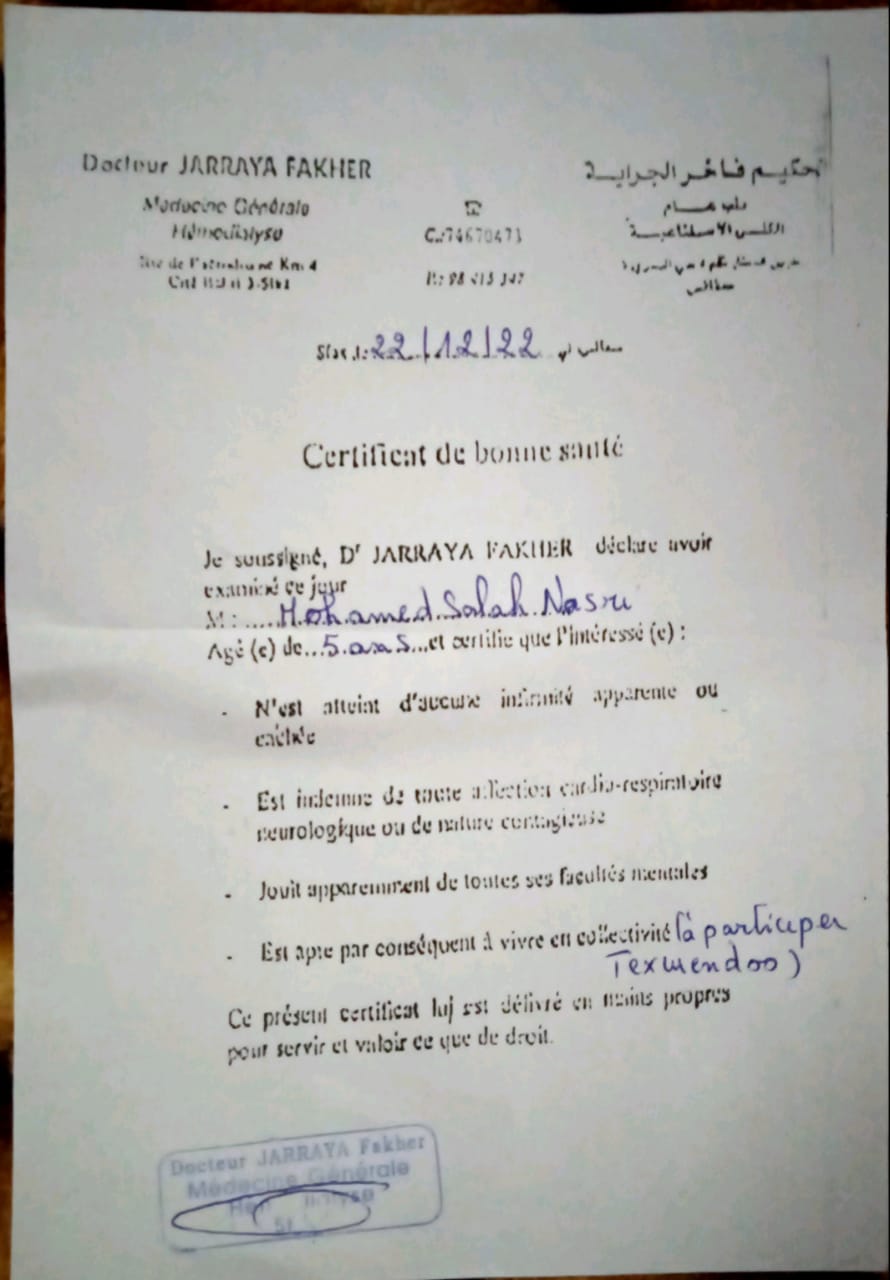 Docteur JARRAYA FAKHER
Médecine Générale
Hémodialyse
Km 4
حكيم فاخر الجراية
طب عام
الكلى الاصطناعية
صفاقس
☎
C.:74670473
P.: 98 413 347
Sfax le: 22/12/22 صفاقس في
Certificat de bonne santé
Je soussigné, Dr JARRAYA FAKHER déclare avoir
examiné ce jour
M : .....Mohamed Salah Nasri
Agé (e) de...5 ans...et certifie que l'intéressé (e) :
- N'est atteint d'aucune infirmité apparente ou
cachée
- Est indemne de toute affection cardio-respiratoire
neurologique ou de nature contagieuse
- Jouit apparemment de toutes ses facultés mentales
- Est apte par conséquent à vivre en collectivité (à participer
Texwendoo)
Ce présent certificat lui est délivré en mains propres
pour servir et valoir ce que de droit.
Docteur JARRAYA Fakher
Médecine Générale